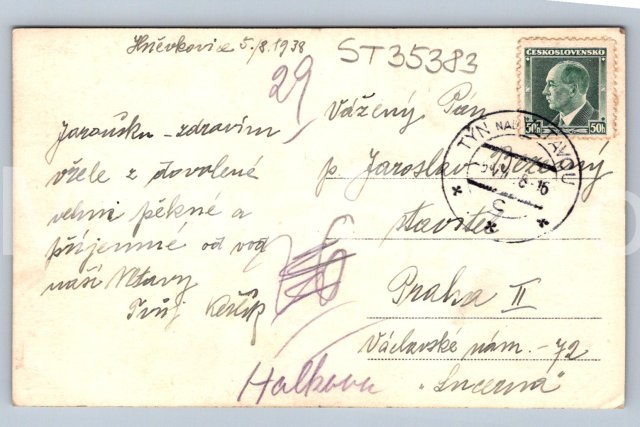 Hněvkovice 5./8. 1938
ST35383
29
ČESKOSLOVENSKO
50h 50h
TÝN NAD VLTAVOU
Jaroušku - zdravím
vřele z dovolené
velmi pěkné a
příjemné od vod
naší Vltavy
Tvůj
Vážený Pán
p. Jaroslav
stavitel
Praha II
Václavské nám. - 72
"Lucerna"
Halkova